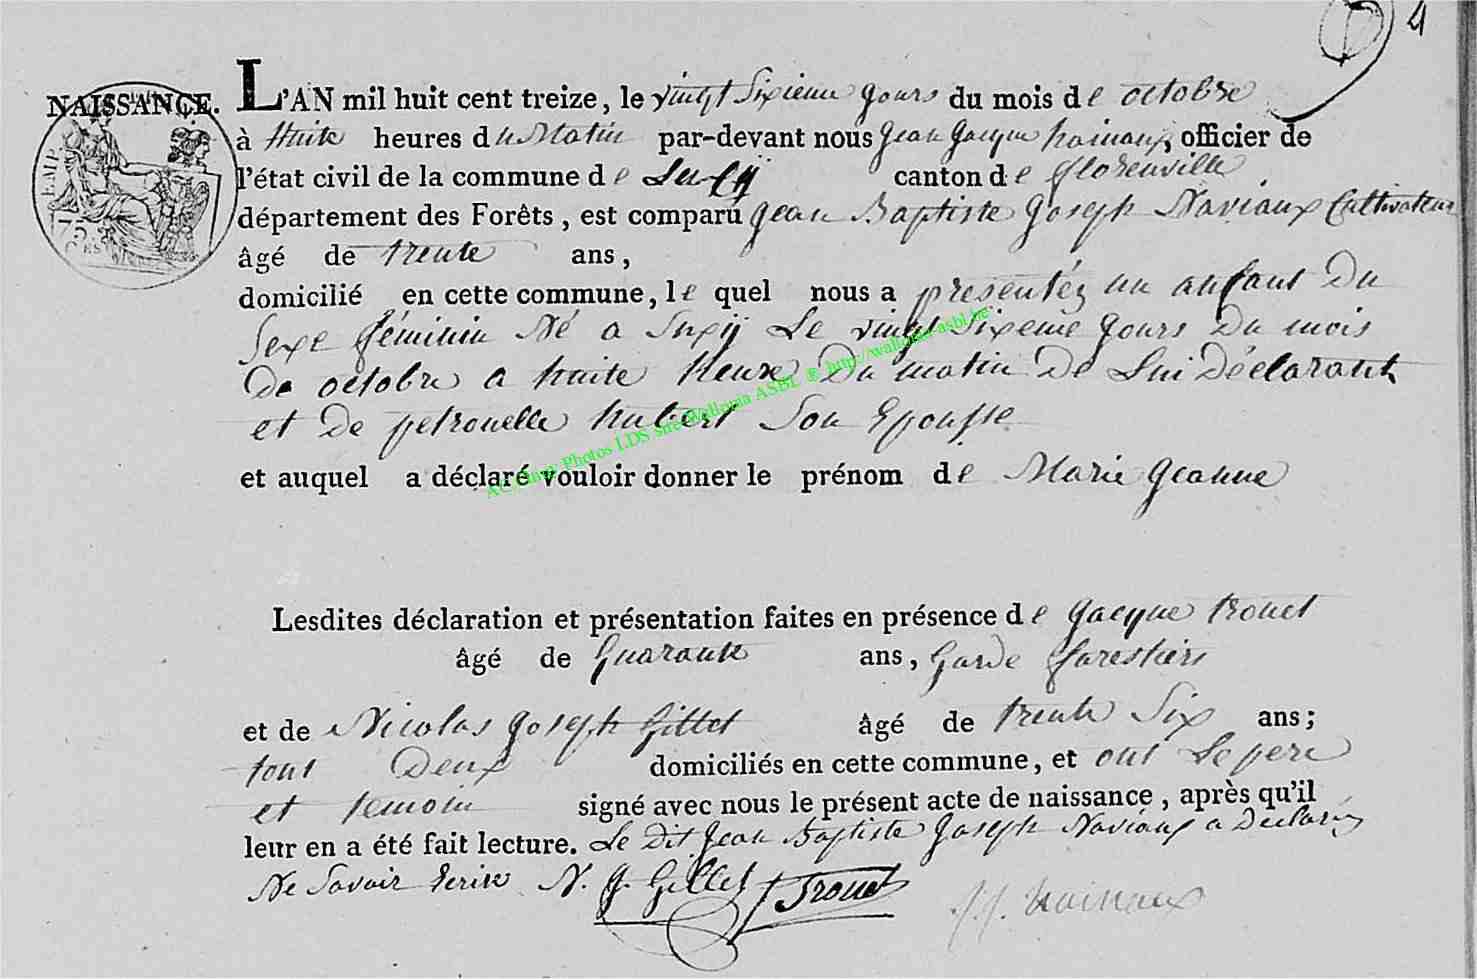 4
NAISSANCE. L'AN mil huit cent treize, le vingt Sixieme jours du mois de octobre
à Huite heures du Matin par-devant nous Jean Jacque hainaux, officier de
l'état civil de la commune de Suxÿ canton de florenville
département des Forêts, est comparu Jean Baptiste Joseph Naviaux Cultivateur
âgé de trente ans,
domicilié en cette commune, le quel nous a presentéz un anfant Du
Sexe féminin Né a Suxÿ Le vingt Sixeme Jours Du mois
De octobre a huite heure Du matin De Lui Déclarant
et De petrouelle hubert Son Epousse
et auquel a déclaré vouloir donner le prénom de Marie Jeanne
Lesdites déclaration et présentation faites en présence de Jacque trouet
âgé de Quarante ans, Garde farestiers
et de Nicolas Joseph Gillet âgé de trente Six ans;
tout Deux domiciliés en cette commune, et ont Le pere
et temoin signé avec nous le présent acte de naissance, après qu'il
leur en a été fait lecture. Le Dit Jean Baptiste Joseph Naviaux a Declaréz
Ne Savoir Ecrire N. J. Gillet Trouet J. J. hainaux
Photos LDS site Wallonia ASBL ® http://wallonia-asbl.be